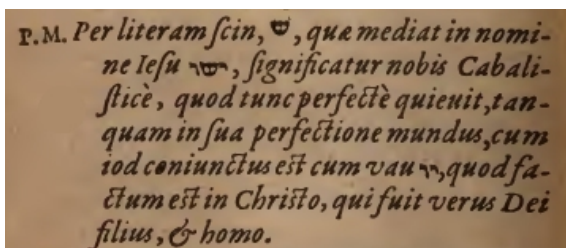 P.M. Per literam ſcin, ש, quæ mediat in nomi-
ne Ieſu ישו, ſignificatur nobis Cabali-
ſticè, quod tunc perfectè quieuit, tan-
quam in ſua perfectione mundus, cum
iod coniunctus eſt cum vau יו, quod fa-
ctum eſt in Chriſto, qui fuit verus Dei
filius, & homo.